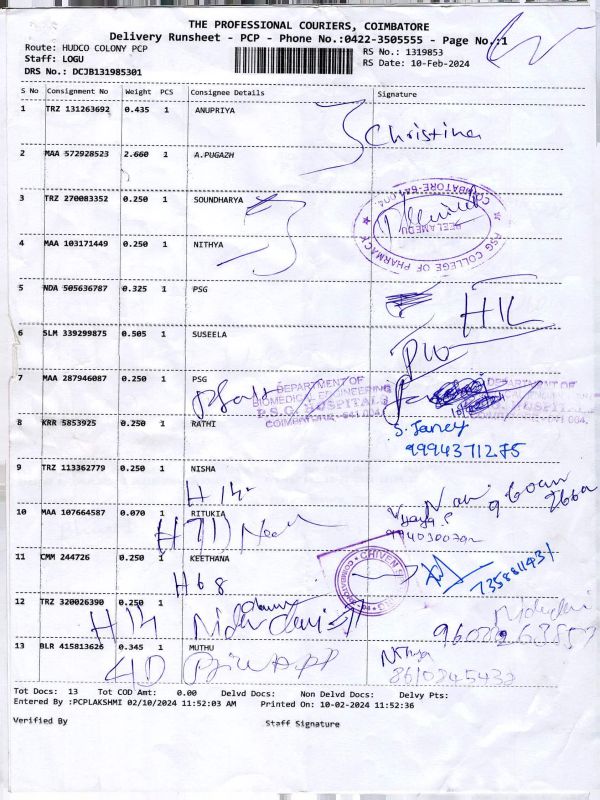 THE PROFESSIONAL COURIERS, COIMBATORE
Delivery Runsheet - PCP - Phone No.:0422-3505555 - Page No.:1
Route: HUDCO COLONY PCP
RS No.: 1319853
Staff: LOGU
RS Date: 10-Feb-2024
DRS No.: DCJB131985301
S No Consignment No Weight PCS Consignee Details Signature
1 TRZ 131263692 0.435 1 ANUPRIYA
Christina
2 MAA 572928523 2.660 1 A.PUGAZH
3 TRZ 270083352 0.250 1 SOUNDHARYA
PSG COLLEGE OF PHARMACY
PEELAMEDU
COIMBATORE-641 004
4 MAA 103171449 0.250 1 NITHYA
5 NDA 505636787 0.325 1 PSG
6 SLM 339299875 0.505 1 SUSEELA
7 MAA 287946087 0.250 1 PSG
DEPARTMENT OF
BIOMEDICAL ENGINEERING
P.S.G. HOSPITALS
COIMBATORE - 641 004.
8 KRR 5853925 0.250 1 RATHI
S. Janey
9994371275
9 TRZ 113362779 0.250 1 NISHA
H 14
10 MAA 107664587 0.070 1 RITUKIA
11 CMM 244726 0.250 1 KEETHANA
H 68
7358811431
12 TRZ 320026390 0.250 1
H 14
13 BLR 415813626 0.345 1 MUTHU
Nithya
8610245432
Tot Docs: 13 Tot COD Amt: 0.00 Delvd Docs: Non Delvd Docs: Delvy Pts:
Entered By :PCPLAKSHMI 02/10/2024 11:52:03 AM Printed On: 10-02-2024 11:52:36
Verified By Staff Signature